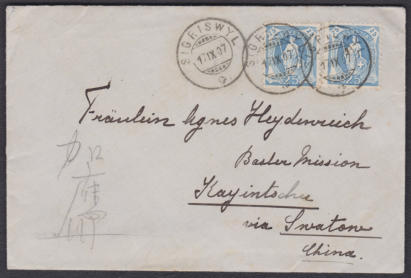 SIGRISWYL
17.IX.07
SIGRISWYL
17.IX.07
25
25
Fräulein Agnes Heydenreich
Basler Mission
Kayintschu
via Swatow
China.
12